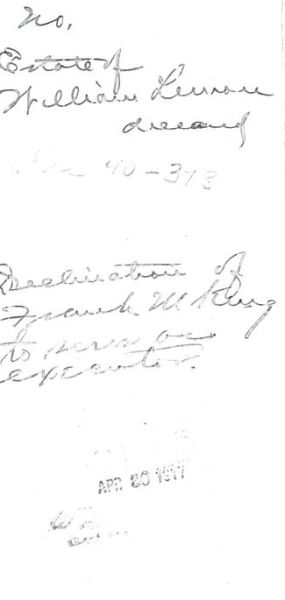 No.
Estate of
William Lennon
deceased
40-313
Declination of
Frank M King
to serve as
executor.
APR 20 1917